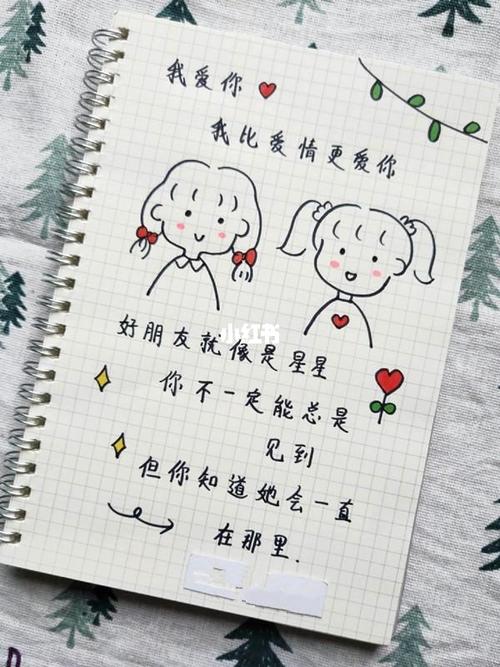 我爱你
我比爱情更爱你
好朋友就像是星星
小红书
你不一定能总是
见到
但你知道她会一直
在那里.